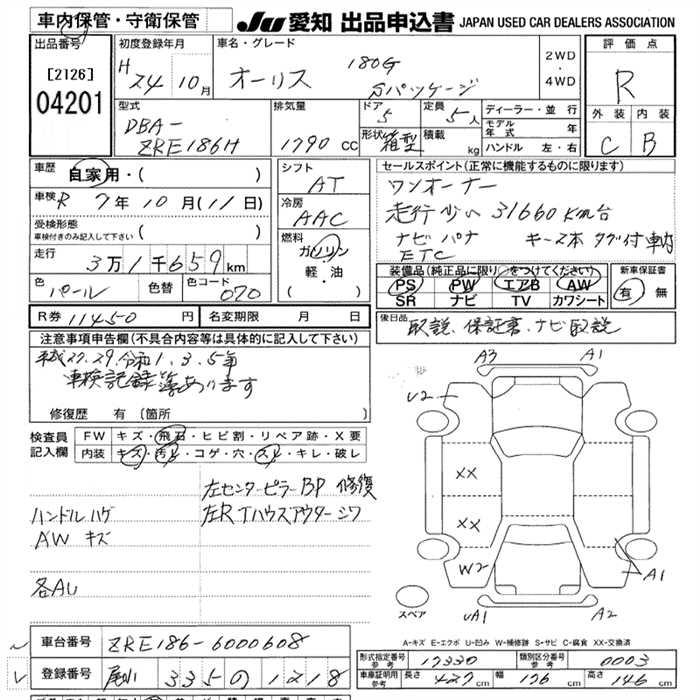 車内保管・守衛保管
JU 愛知 出品申込書 JAPAN USED CAR DEALERS ASSOCIATION
出品店 初度登録年月 車名・グレード 2WD・4WD 評価点
[2126]
04201
H 24 年 10月 オーリス 180G Sパッケージ R
型式 排気量 ドア 定員 ディーラー・並行 外装 内装
DBA-
ZRE186H 1790 cc 5 5人 モデル年式 年
形状 箱型 積載 kg ハンドル 左・右 C B
車歴 自家用・( )
車検 R 7年10月(11日)
受検形態
車検付きのみ記入して下さい ( )
走行 3万1千659km
色 パール 色替 色コード 070
シフト AT
冷房 AAC
燃料 ガソリン
軽・油
( )
セールスポイント(正常に機能するものに限ります)
ワンオーナー
走行少い 31660Km台
ナビ パナ キー2本 タグ付車内
ETC
装備品(純正品に限り○をつけてください) 新車保証書
PS PW エアB AW 有・無
SR ナビ TV カワシート
R券 11450円 名変期限 月 日
後日品 取説、保証書、ナビ取説
注意事項申告欄(不具合内容等は具体的に記入して下さい)
平成27.29.令和1.3.5年
車検記録簿あります
修復歴 有 〔箇所 〕
検査員記入欄 FW キズ・飛石・ヒビ割・リペア跡・X要
内装 キズ・汚レ・コゲ・穴・スレ・キレ・破レ
左センターピラーBP 修復
左RTハウスアウターシワ
ハンドルハゲ
AW キズ
各AU
A3 A1
U2
XX
XX
W2
A1
UA1 A2
スペア
A-キズ E-エクボ U-凹み W-補修跡 S-サビ C-腐食 XX-交換済
車台番号 ZRE186-6000608
登録番号 尾張小牧 335 の 1218
形式指定番号 参考 17330 類別区分番号 参考 0003
車庫証明用 参考 長さ 427cm 幅 176cm 高さ 146cm